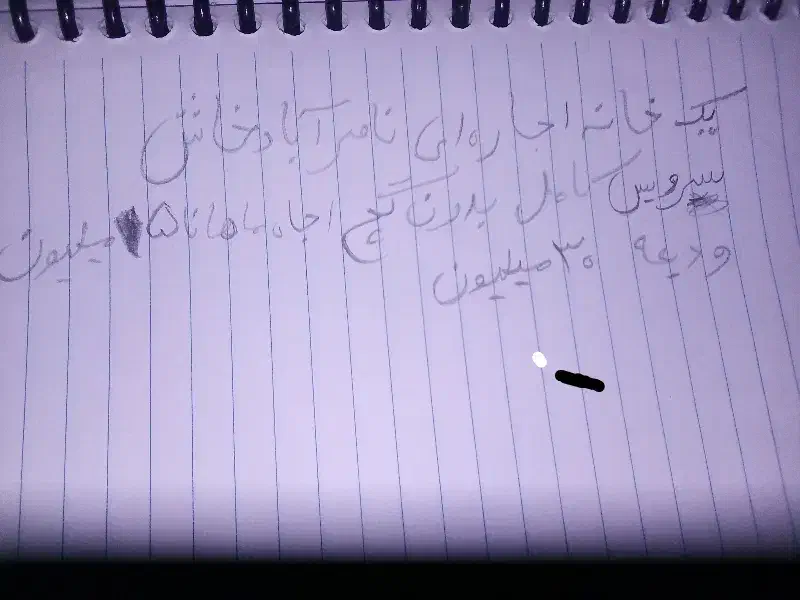 یک خانه اجاره‌ای ناصرآباد خاش
سرویس کامل بدون گچ اجاه ماهانا ۵ میلیون
ودیعه ۳۰ میلیون